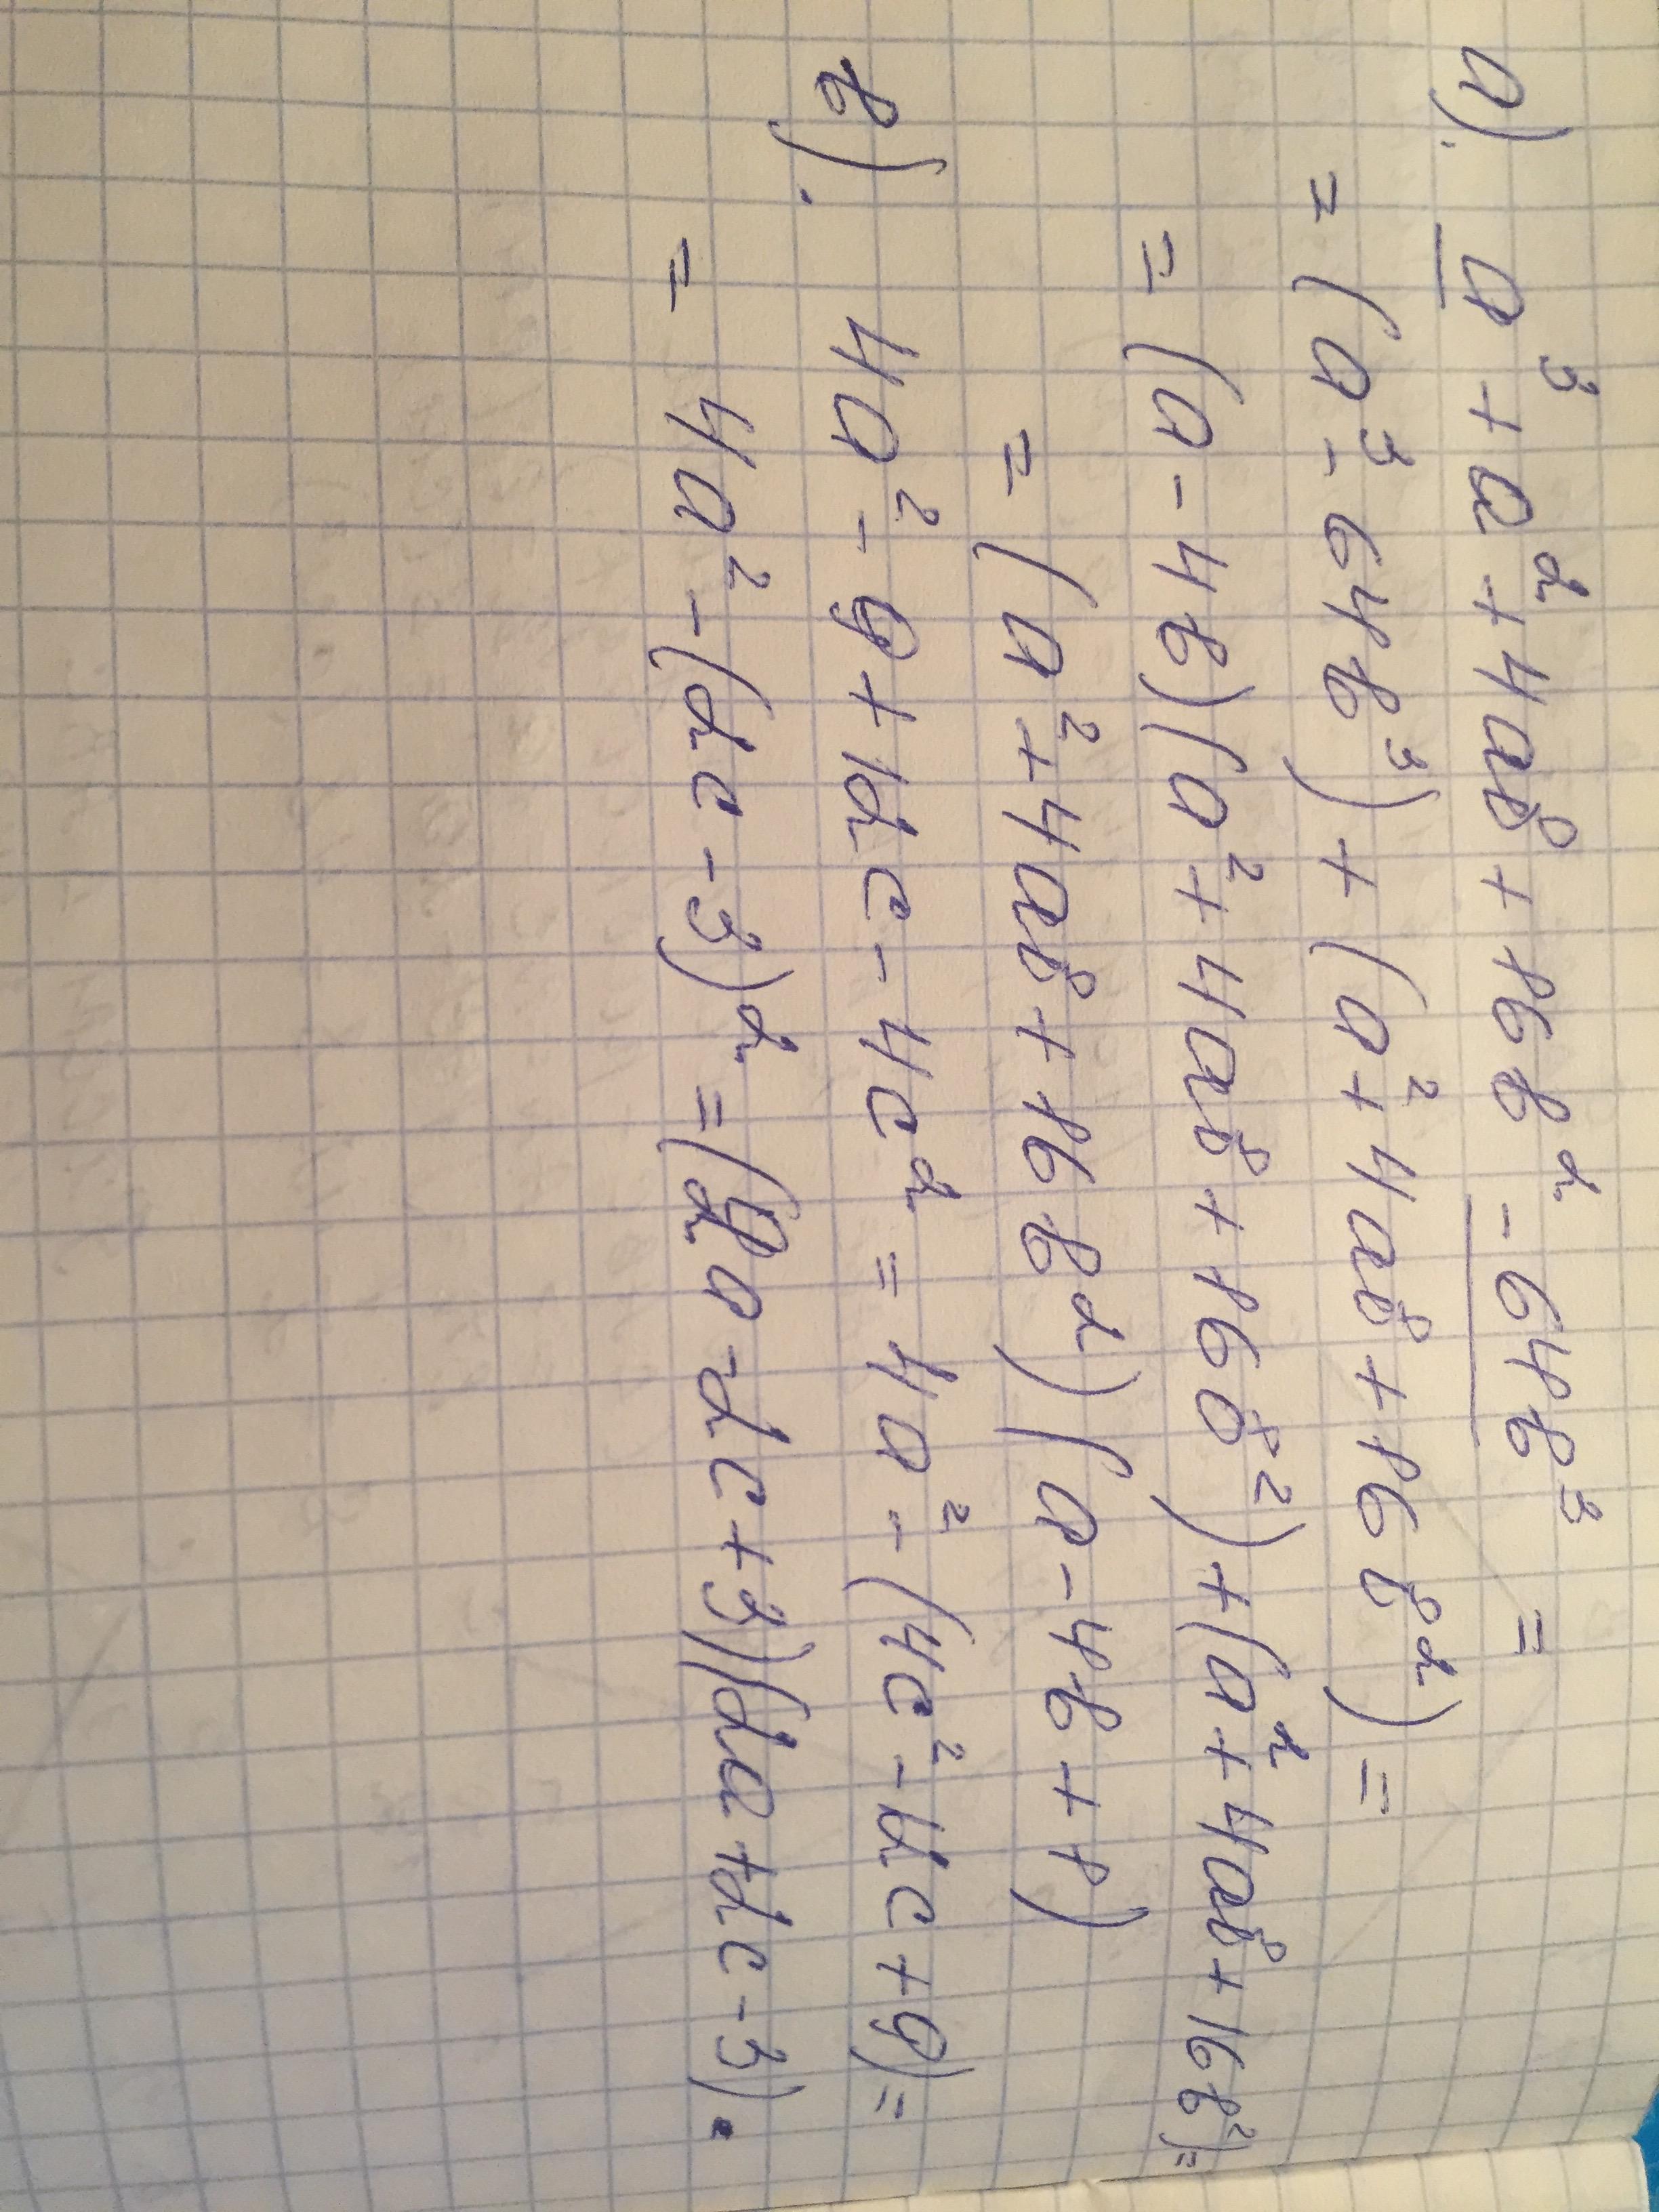 а). a³ + a² + 4ab + 16b² - 64b³ =
= (a³ - 64b³) + (a² + 4ab + 16b²) =
= (a - 4b)(a² + 4ab + 16b²) + (a² + 4ab + 16b²) =
= (a² + 4ab + 16b²)(a - 4b + 1)
в). 4a² - 9 + 12c - 4c² = 4a² - (4c² - 12c + 9) =
= 4a² - (2c - 3)² = (2a - 2c + 3)(2a + 2c - 3).